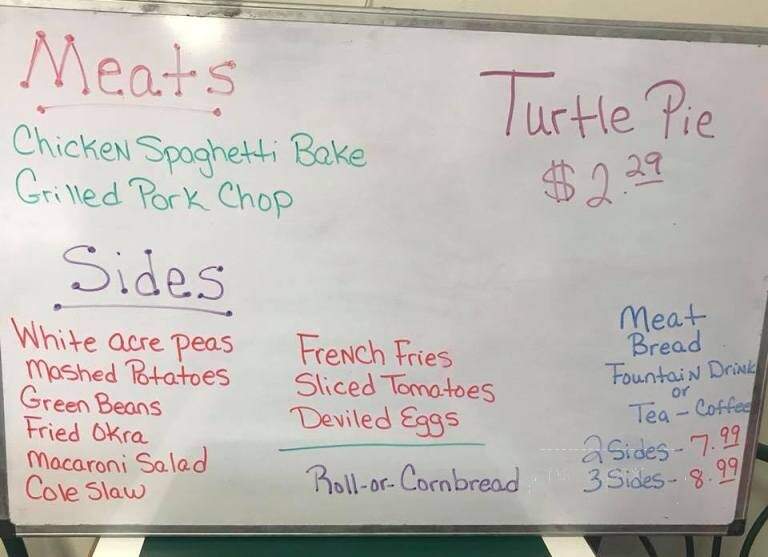 Meats
Chicken Spaghetti Bake
Grilled Pork Chop
Turtle Pie
$2.29
Sides
White acre peas
Mashed Potatoes
Green Beans
Fried Okra
Macaroni Salad
Cole Slaw
French Fries
Sliced Tomatoes
Deviled Eggs
Roll-or-Cornbread
Meat
Bread
Fountain Drink
or
Tea - Coffee
2 Sides - 7.99
3 Sides - 8.99